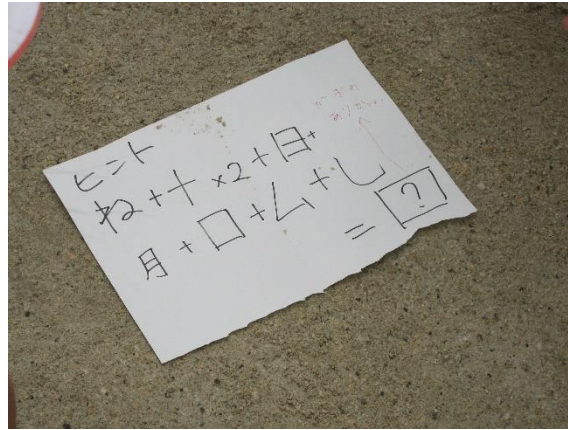 ヒント
ね+十×2+日+
月+口+ム+し
=?